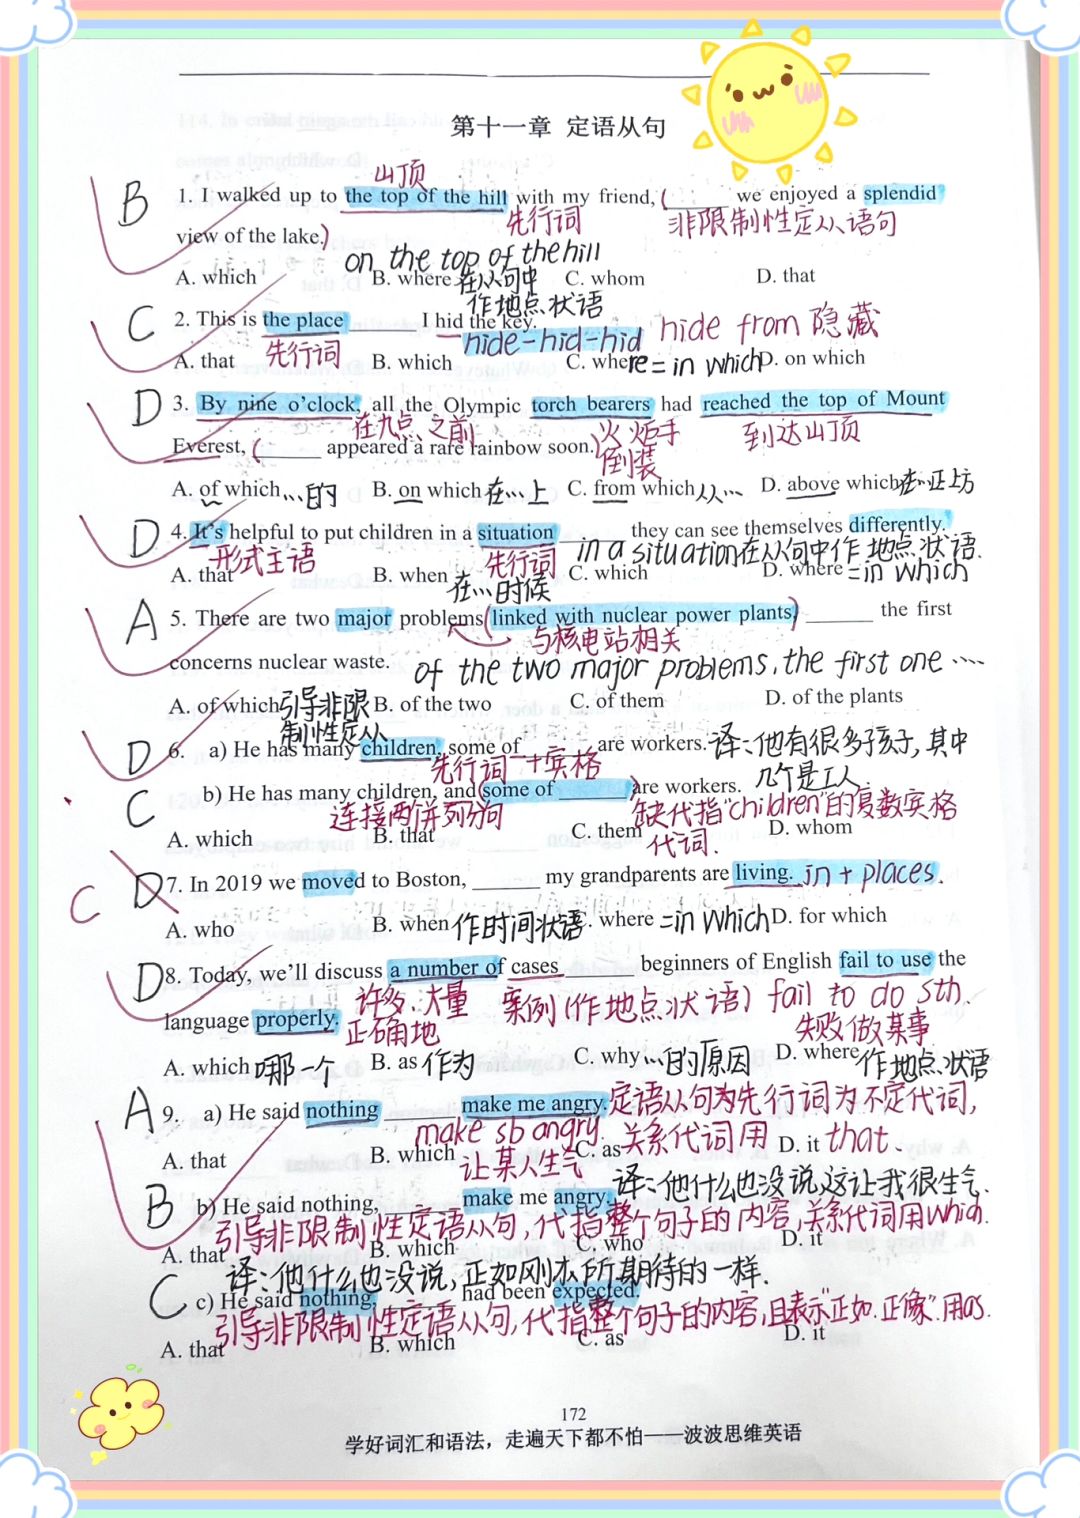 第十一章 定语从句
山顶
B 1. I walked up to the top of the hill with my friend, ( ______ we enjoyed a splendid
先行词 非限制性定从语句
view of the lake.)
on the top of the hill
A. which B. where 在从句中 C. whom D. that
作地点状语
C 2. This is the place ______ I hid the key.
先行词 hide-hid-hid hide from 隐藏
A. that B. which C. where = in which D. on which
D 3. By nine o'clock, all the Olympic torch bearers had reached the top of Mount
在九点之前 火炬手 到达山顶
Everest, ( ______ appeared a rare rainbow soon.)
倒装
A. of which ...的 B. on which 在...上 C. from which 从... D. above which 在...正上方
D 4. It's helpful to put children in a situation ______ they can see themselves differently.
形式主语 先行词 in a situation 在从句中作地点状语.
A. that B. when 在...时候 C. which D. where = in which
A 5. There are two major problems (linked with nuclear power plants,) ______ the first
与核电站相关
concerns nuclear waste.
of the two major problems, the first one ....
A. of which 引导非限制性定从 B. of the two C. of them D. of the plants
D 6. a) He has many children, some of ______ are workers. 译:他有很多孩子,其中几个是工人.
先行词 +宾格
C b) He has many children, and (some of ______ )are workers.
连接两个并列分句 缺代指"children"的复数宾格代词.
A. which B. that C. them D. whom
C D 7. In 2019 we moved to Boston, ______ my grandparents are living. in + places.
A. who B. when 作时间状语 C. where = in which D. for which
D 8. Today, we'll discuss a number of cases ______ beginners of English fail to use the
许多.大量 案例(作地点状语) fail to do sth.
language properly. 正确地 失败做某事
A. which 哪一个 B. as 作为 C. why ...的原因 D. where 作地点状语
A 9. a) He said nothing ______ make me angry. 定语从句为先行词为不定代词,
make sb angry. 关系代词用 that.
A. that B. which C. as D. it
让某人生气
B b) He said nothing, ______ make me angry. 译:他什么也没说,这让我很生气.
引导非限制性定语从句,代指整个句子的内容,关系代词用which.
A. that B. which C. who D. it
译:他什么也没说,正如刚才所期待的一样.
C c) He said nothing, ______ had been expected.
引导非限制性定语从句,代指整个句子的内容,且表示"正如.正像".用as.
A. that B. which C. as D. it
172
学好词汇和语法,走遍天下都不怕——波波思维英语